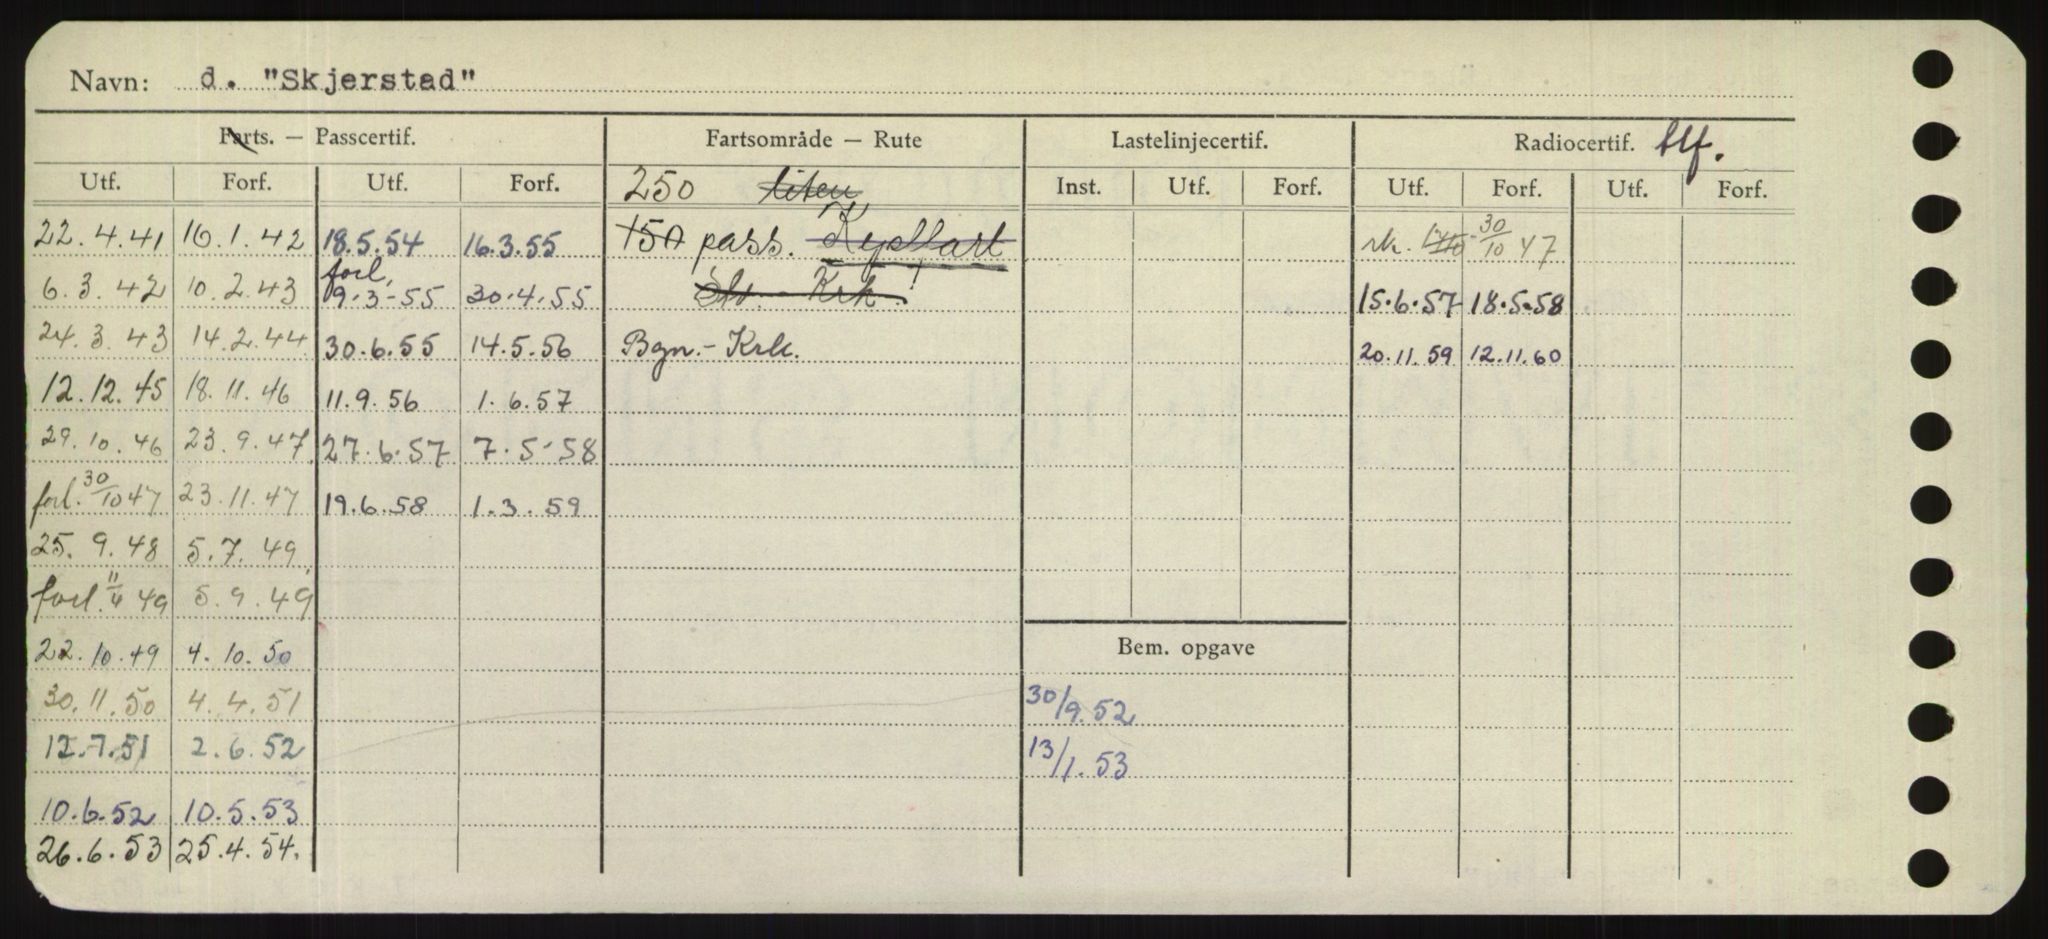 Navn: d. "Skjerstad"
Farts. — Passcertif. Fartsområde — Rute Lastelinjecertif. Radiocertif. tlf.
Utf. Forf. Utf. Forf. 250 liten Inst. Utf. Forf. Utf. Forf. Utf. Forf.
22.4.41 16.1.42 18.5.54 16.3.55 150 pass. Kystfart rk. 30/10 47
6.3.42 10.2.43 forl. 9-3-55 30.4.55 Krk. 15.6.57 18.5.58
24.3.43 14.2.44 30.6.55 14.5.56 Bgn.- Krk. 20.11.59 12.11.60
12.12.45 18.11.46 11.9.56 1.6.57
29.10.46 23.9.47 27.6.57 7.5.58
forl. 30/10 47 23.11.47 19.6.58 1.3.59
25.9.48 5.7.49
forl. 49 5.9.49
22.10.49 4.10.50
Bem. opgave
30.11.50 4.4.51 30/9.52
12.7.51 2.6.52 13/1.53
10.6.52 10.5.53
26.6.53 25.4.54.